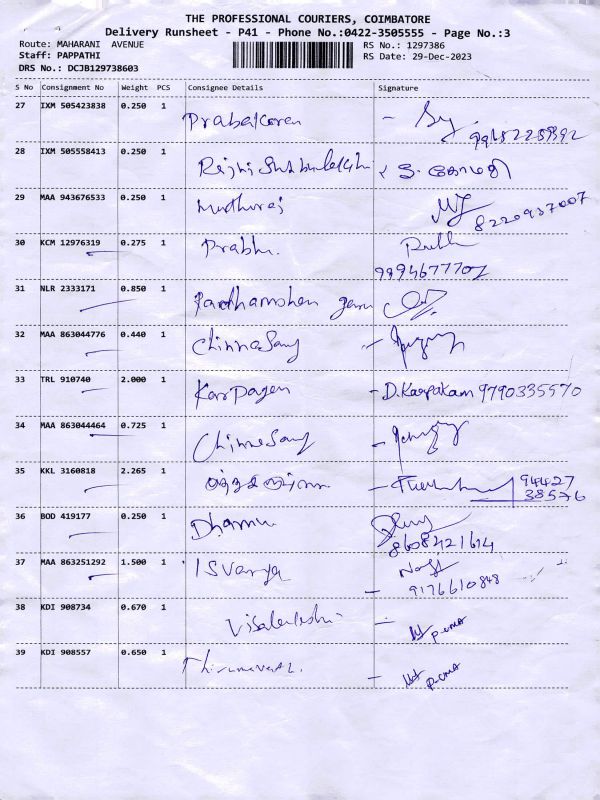 THE PROFESSIONAL COURIERS, COIMBATORE
Delivery Runsheet - P41 - Phone No.:0422-3505555 - Page No.:3
Route: MAHARANI AVENUE RS No.: 1297386
Staff: PAPPATHI RS Date: 29-Dec-2023
DRS No.: DCJB129738603
S No Consignment No Weight PCS Consignee Details Signature
27 IXM 505423838 0.250 1 Prabakaren
28 IXM 505558413 0.250 1
29 MAA 943676533 0.250 1 Muthuraj 8220937007
30 KCM 12976319 0.275 1 Prabhu.
9894677702
31 NLR 2333171 0.850 1
32 MAA 863044776 0.440 1 Chinnasamy
33 TRL 910740 2.000 1 Karpagam - D.Karpakam 9790335570
34 MAA 863044464 0.725 1 Chinnasamy
35 KKL 3160818 2.265 1 94427
38576
36 BOD 419177 0.250 1 Dhanu
8608421614
37 MAA 863251292 1.500 1 ISvarya
9176610848
38 KDI 908734 0.670 1 Visalakshi
39 KDI 908557 0.650 1